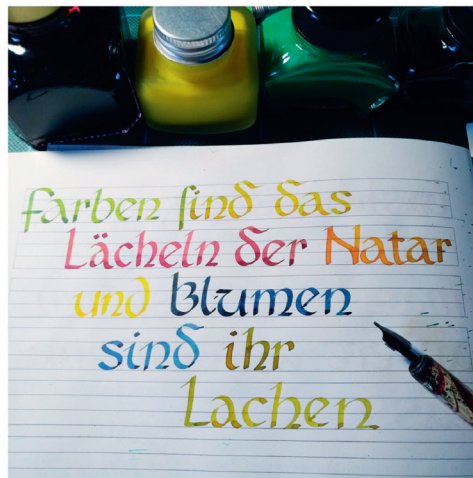 farben ſind das
Lächeln der Natar
und Blumen
sind ihr
Lachen